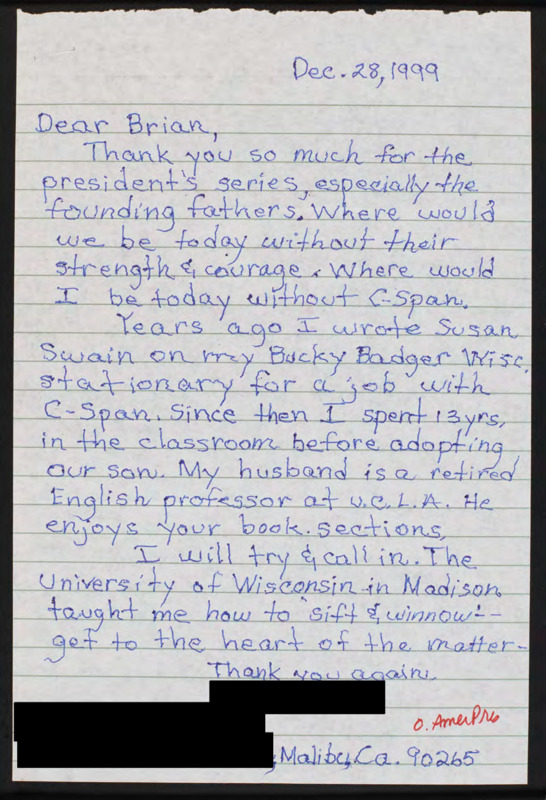 Dec. 28, 1999
Dear Brian,
Thank you so much for the
president's series, especially the
founding fathers. Where would
we be today without their
strength & courage. Where would
I be today without C-Span.
Years ago I wrote Susan
Swain on my Bucky Badger Wisc.
stationary for a job with
C-Span. Since then I spent 13 yrs,
in the classroom before adopting
our son. My husband is a retired
English professor at U.C.L.A. He
enjoys your book sections.
I will try & call in. The
University of Wisconsin in Madison
taught me how to "sift & winnow"--
get to the heart of the matter-
Thank you again.
O. AmerPre
Malibu, Ca. 90265